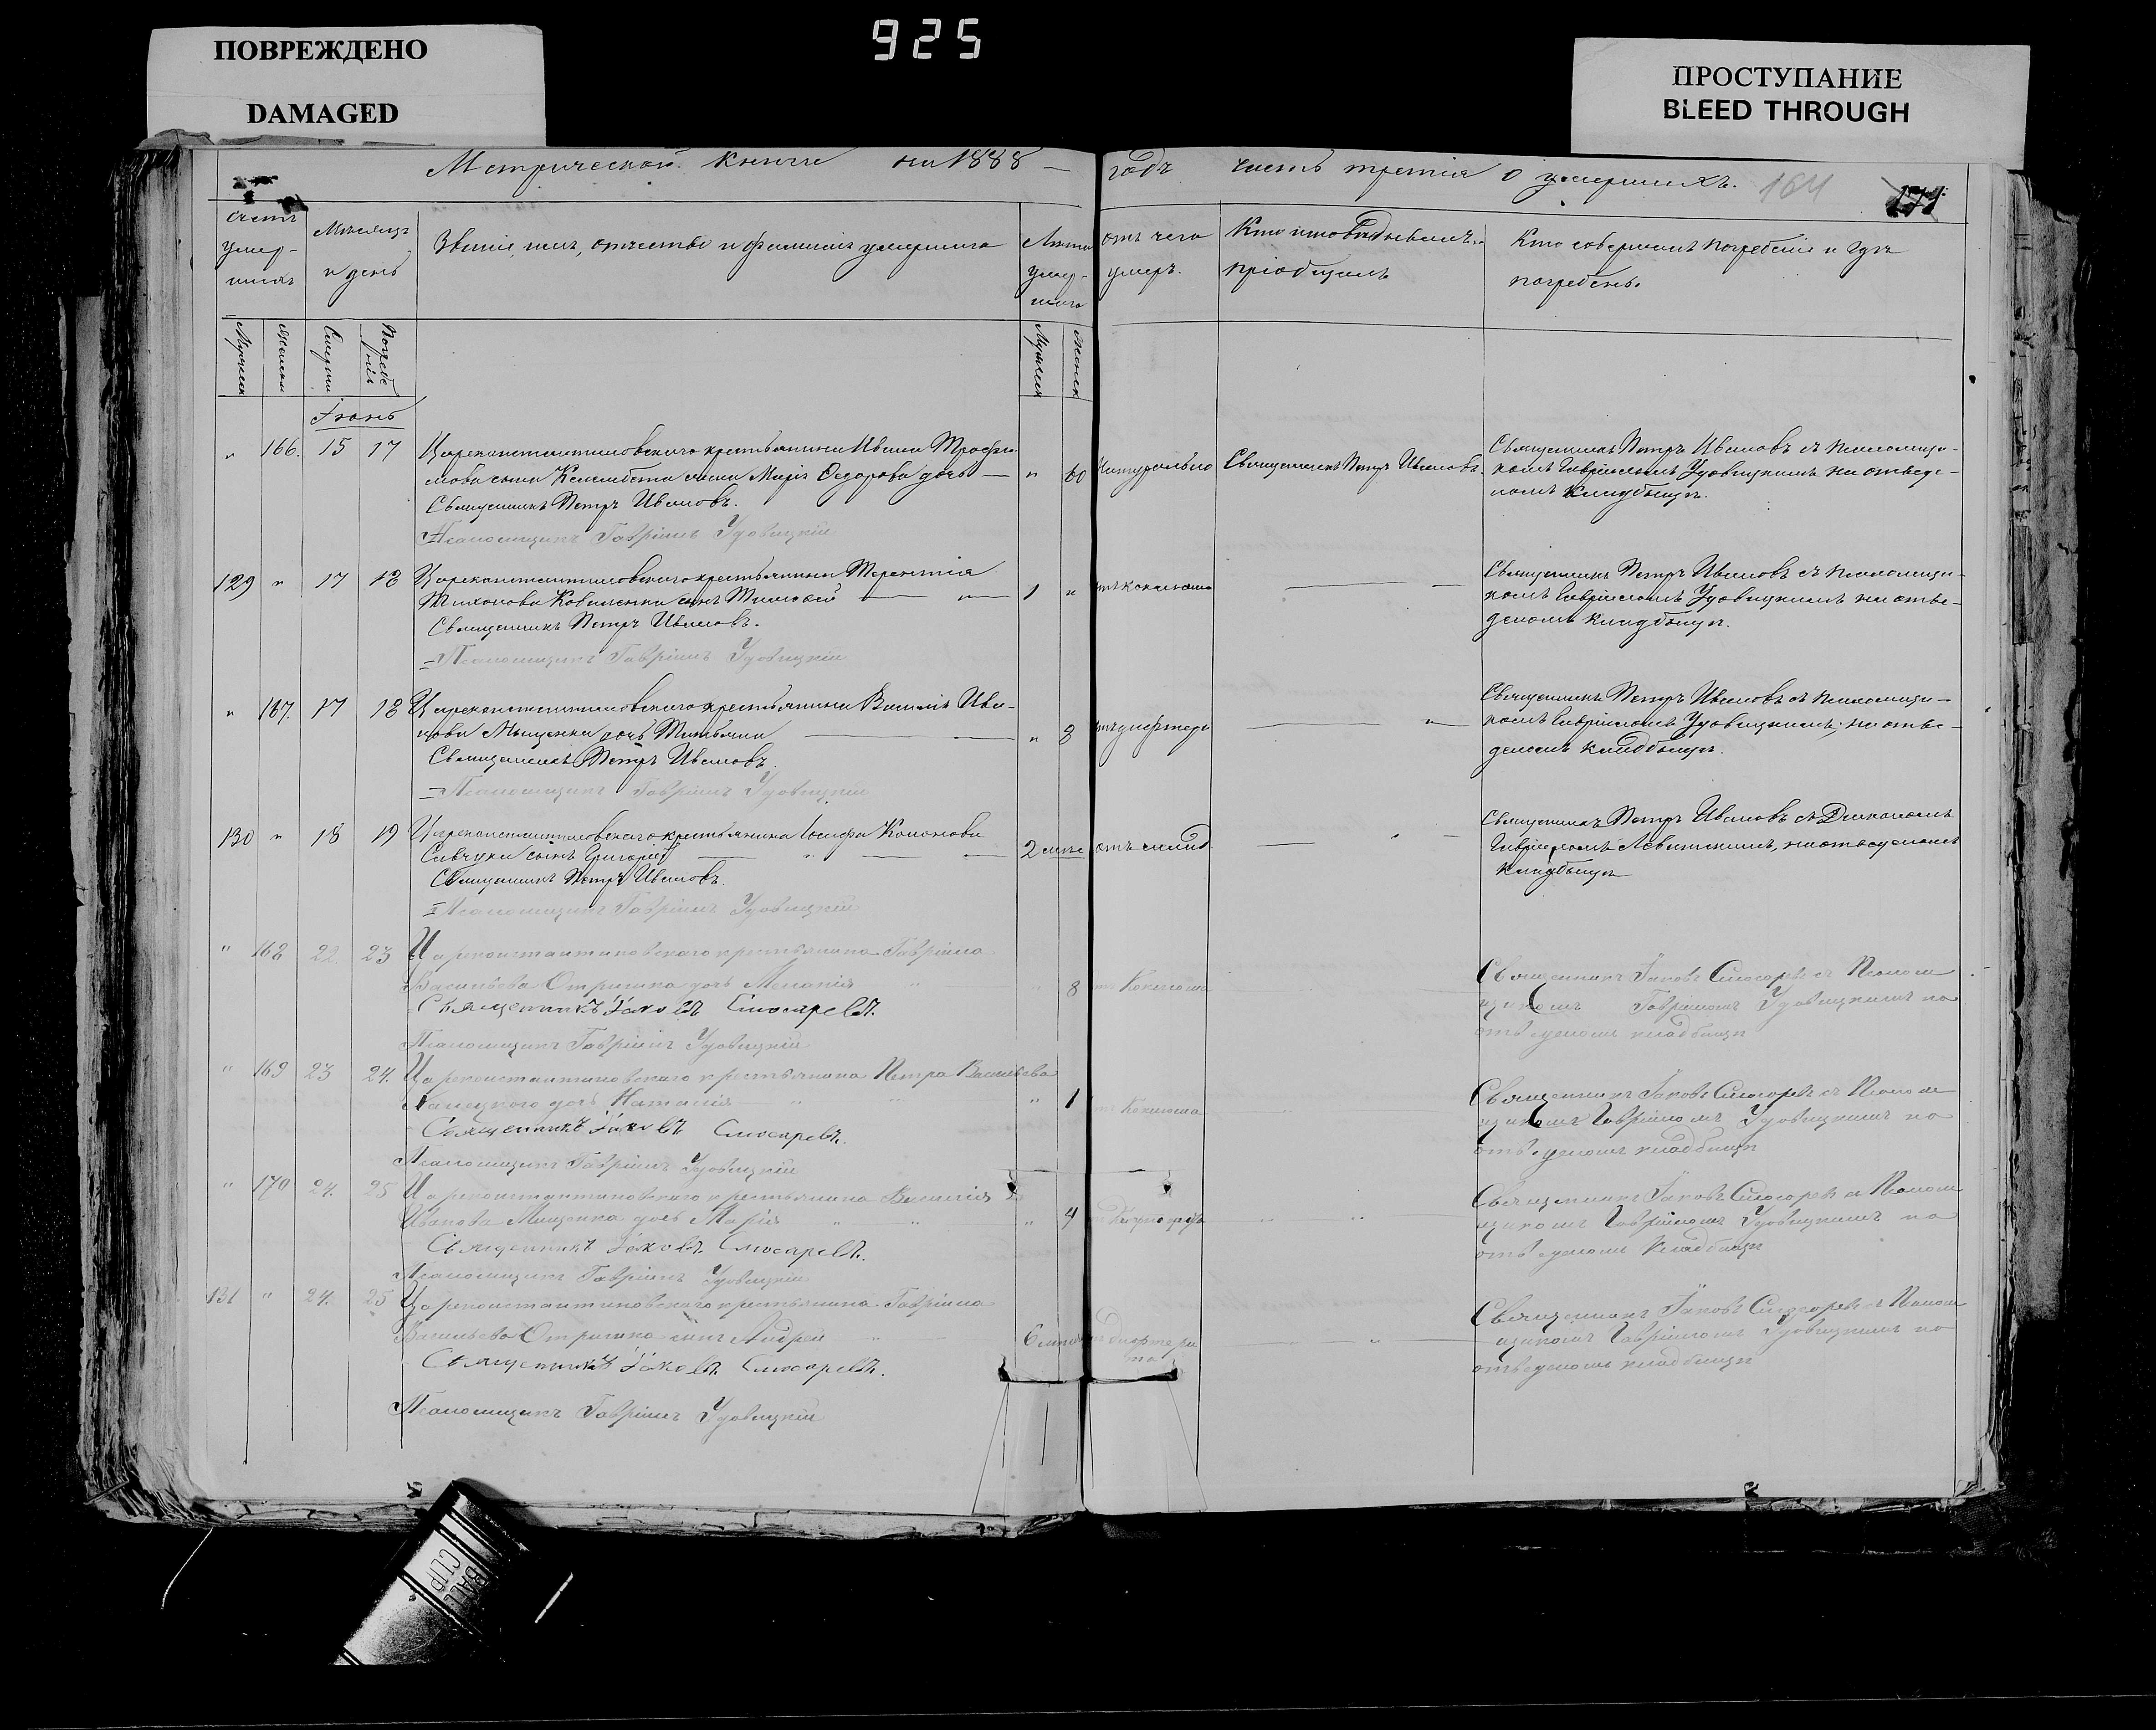 ПОВРЕЖДЕНО
DAMAGED
925
ПРОСТУПАНИЕ
BLEED THROUGH
Метрической книги на 1888 —
годъ часть третія о умершихъ. 164
Счетъ умер- шихъ
Мѣсяцъ и день
Званіе, имя, отчество и фамилія умершаго
Лѣта умер- шаго
отъ чего умеръ.
Кто исповѣдывалъ и пріобщалъ
Кто совершалъ погребеніе и гдѣ погребенъ.
Мужеска Женска Смерти Погребе нія Мужеска Женска
Іюнь
" 166. 15 17 Цареконстантиновскаго крестьянина Ивана Трофи-
мова сына жена Марія Ѳедорова дочь — " 60 Натурально Священникъ Петръ Ивановъ.
Священникъ Петръ Ивановъ.
Псаломщикъ Гавріилъ Удовицкій
Священникъ Петръ Ивановъ съ псаломщи-
комъ Гавріиломъ Удовицкимъ на отведе-
номъ кладбищѣ.
129 " 17 18 Цареконстантиновскаго крестьянина Терентія
Тихонова сынъ Тимофей — " — 1 " отъ коклюша —
Священникъ Петръ Ивановъ.
Псаломщикъ Гавріилъ Удовицкій
Священникъ Петръ Ивановъ съ псаломщи-
комъ Гавріиломъ Удовицкимъ на отве-
деномъ кладбищѣ.
" 167. 17 18 Цареконстантиновскаго крестьянина Василія Ива-
нова Мищенка дочь Татьяна — " 8 — "
Священникъ Петръ Ивановъ.
Псаломщикъ Гавріилъ Удовицкій
Священникъ Петръ Ивановъ съ псаломщи-
комъ Гавріиломъ Удовицкимъ, на отве-
деномъ кладбищѣ.
130 " 18 19 Цареконстантиновскаго крестьянина Іосифа Кононова
Савчука сынъ Григорій — " — 2 отъ — "
Священникъ Петръ Ивановъ.
Псаломщикъ Гавріилъ Удовицкій
Священникъ Петръ Ивановъ съ Діакономъ
Гавріиломъ Левитскимъ, на отведеномъ
кладбищѣ
" 168 22. 23 Цареконстантиновскаго крестьянина Гавріила
Васильева Отришка дочь Меланія " " 8 отъ Коклюша
Священникъ Іаковъ Слюсаревъ.
Псаломщикъ Гавріилъ Удовицкій
Священникъ Іаковъ Слюсаревъ съ Псалом
щикомъ Гавріиломъ Удовицкимъ на
отведеномъ кладбищѣ
" 169 23 24. Цареконстантиновскаго крестьянина Петра Васильева
дочь Наталія " " " 1 отъ Коклюша
Священникъ Іаковъ Слюсаревъ.
Псаломщикъ Гавріилъ Удовицкій
Священникъ Іаковъ Слюсаревъ съ Псалом
щикомъ Гавріиломъ Удовицкимъ на
отведеномъ кладбищѣ
" 170 24. 25 Цареконстантиновскаго крестьянина Василія
Иванова Мищенка дочь Марія " " " 4 " "
Священникъ Іаковъ Слюсаревъ.
Псаломщикъ Гавріилъ Удовицкій
Священникъ Іаковъ Слюсаревъ съ Псалом
щикомъ Гавріиломъ Удовицкимъ на
отведеномъ кладбищѣ
131 " 24. 25 Цареконстантиновскаго крестьянина Гавріила
Васильева Отришка сынъ Андрей " 6 дифтери
та — " —
Священникъ Іаковъ Слюсаревъ.
Псаломщикъ Гавріилъ Удовицкій
Священникъ Іаковъ Слюсаревъ съ Псалом
щикомъ Гавріиломъ Удовицкимъ на
отведеномъ кладбищѣ
BALL
CLIP